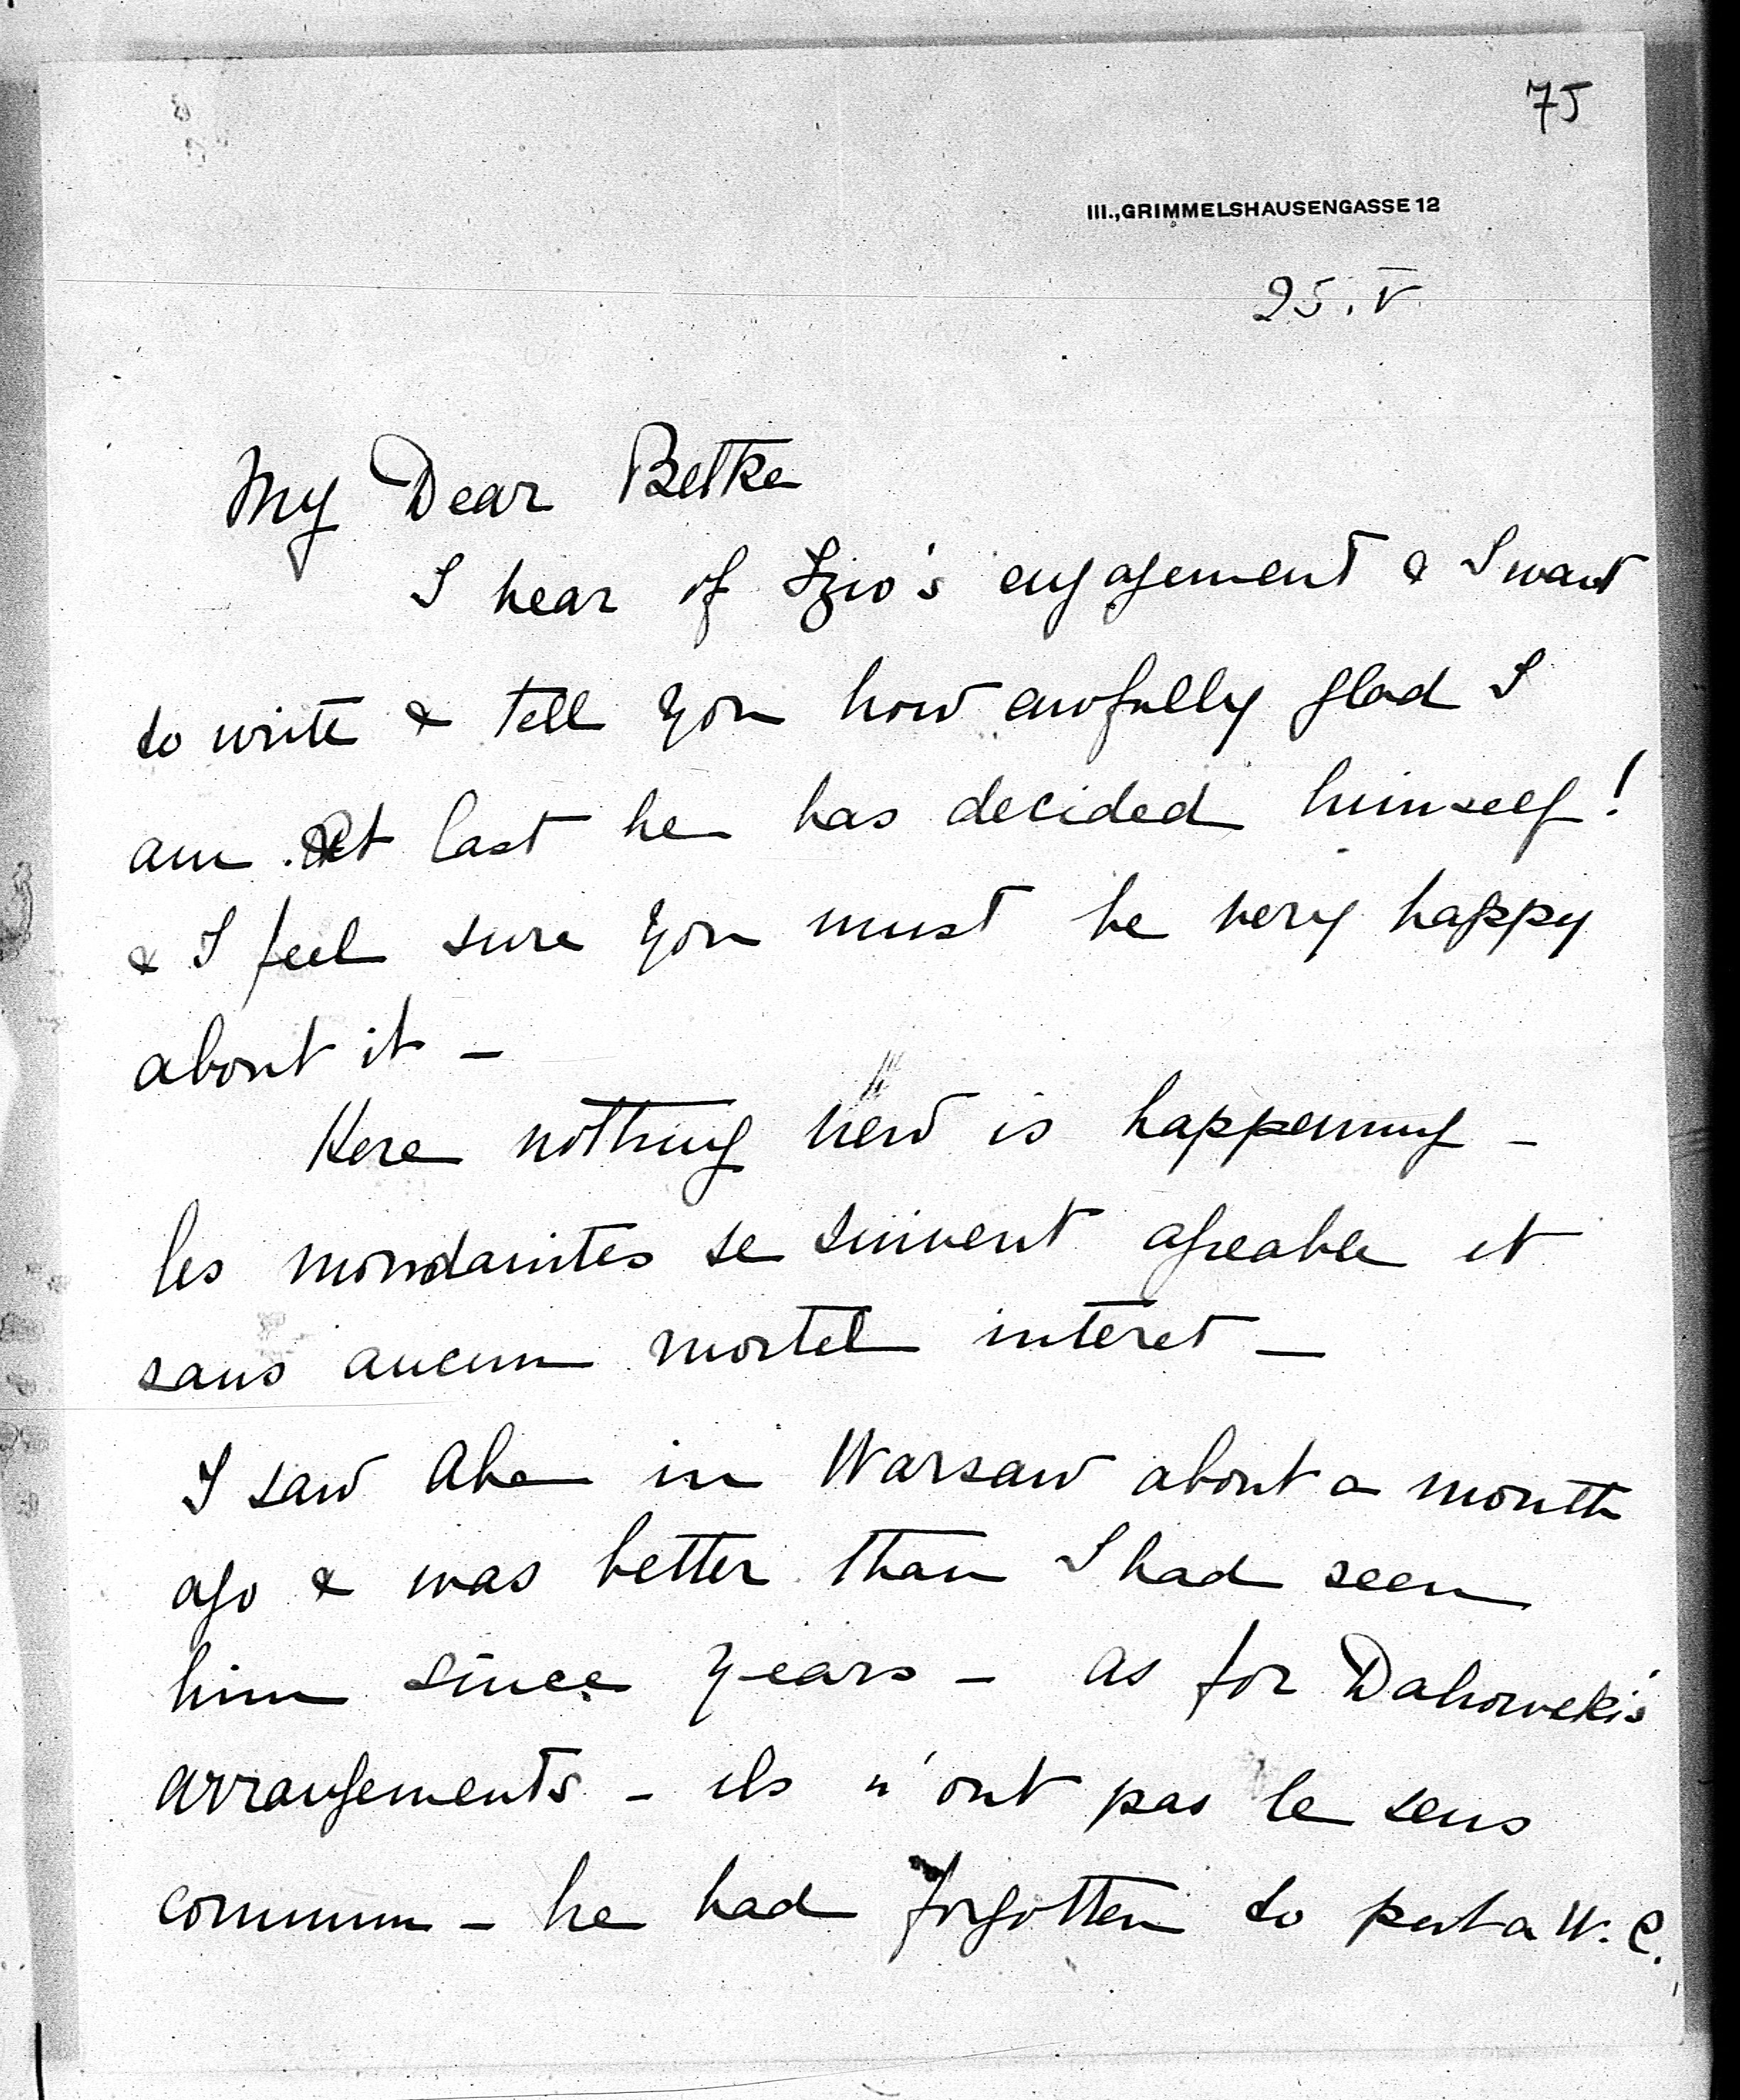 75
III., GRIMMELSHAUSENGASSE 12
25. V
My Dear Betke
I hear of Izio's engagement & I want
to write & tell you how awfully glad I
am. At last he has decided himself!
& I feel sure you must be very happy
about it –
Here nothing new is happening –
les mondanites se suivent agreable et
sans aucun mortel interet –
I saw Abe in Warsaw about a month
ago & was better than I had seen
him since years – as for
arrangements – ils n'ont pas le sens
commun – he had forgotten to put a W. C.